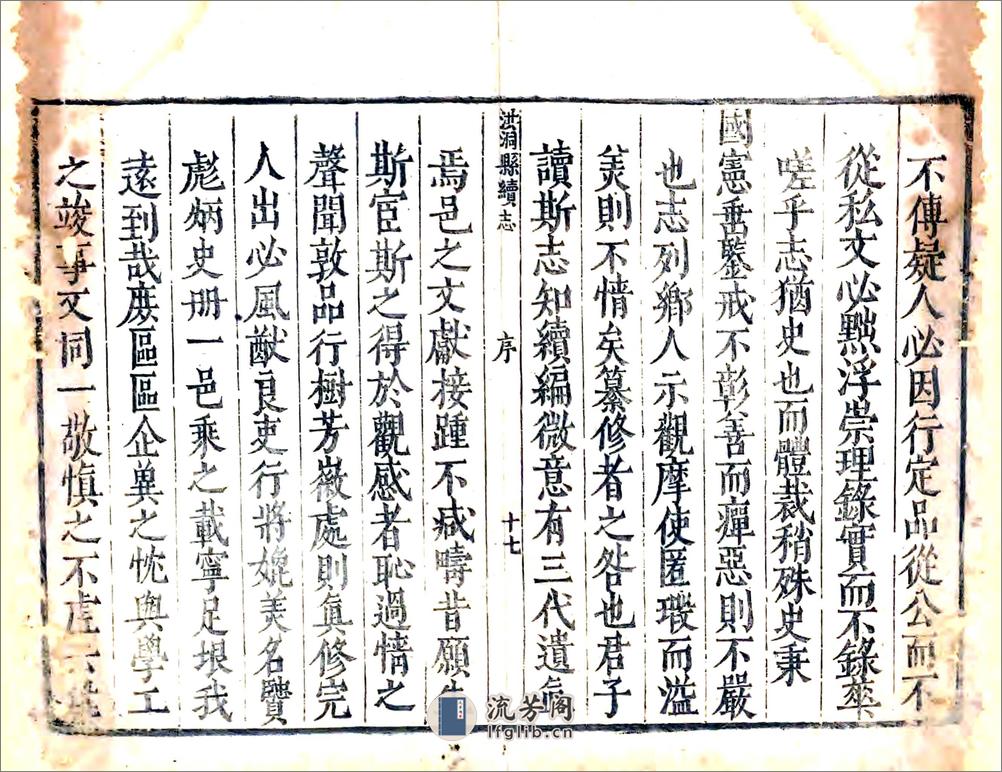 不傳疑人必因行定品從公而不
從私文必黜浮崇理錄實而不錄華
嗟乎志猶史也而體裁稍殊史秉
國憲垂鑒戒不彰善而癉惡則不嚴
也志列鄉人示觀摩使匿瑕而溢
美則不情矣纂修者之咎也君子
讀斯志知續編微意有三代遺
洪洞縣續志
序
十七
焉邑之文獻接踵不減疇昔願
斯宦斯之得於觀感者恥過情之
聲聞敦品行樹芳徽處則眞修完
人出必風猷良吏行將媲美名賢
彪炳史册一邑乘之載寧足垠我
遠到哉庶區區企異之忱與學工
之竣事文同一敬慎之不虛
流芳阁
lfglib.cn